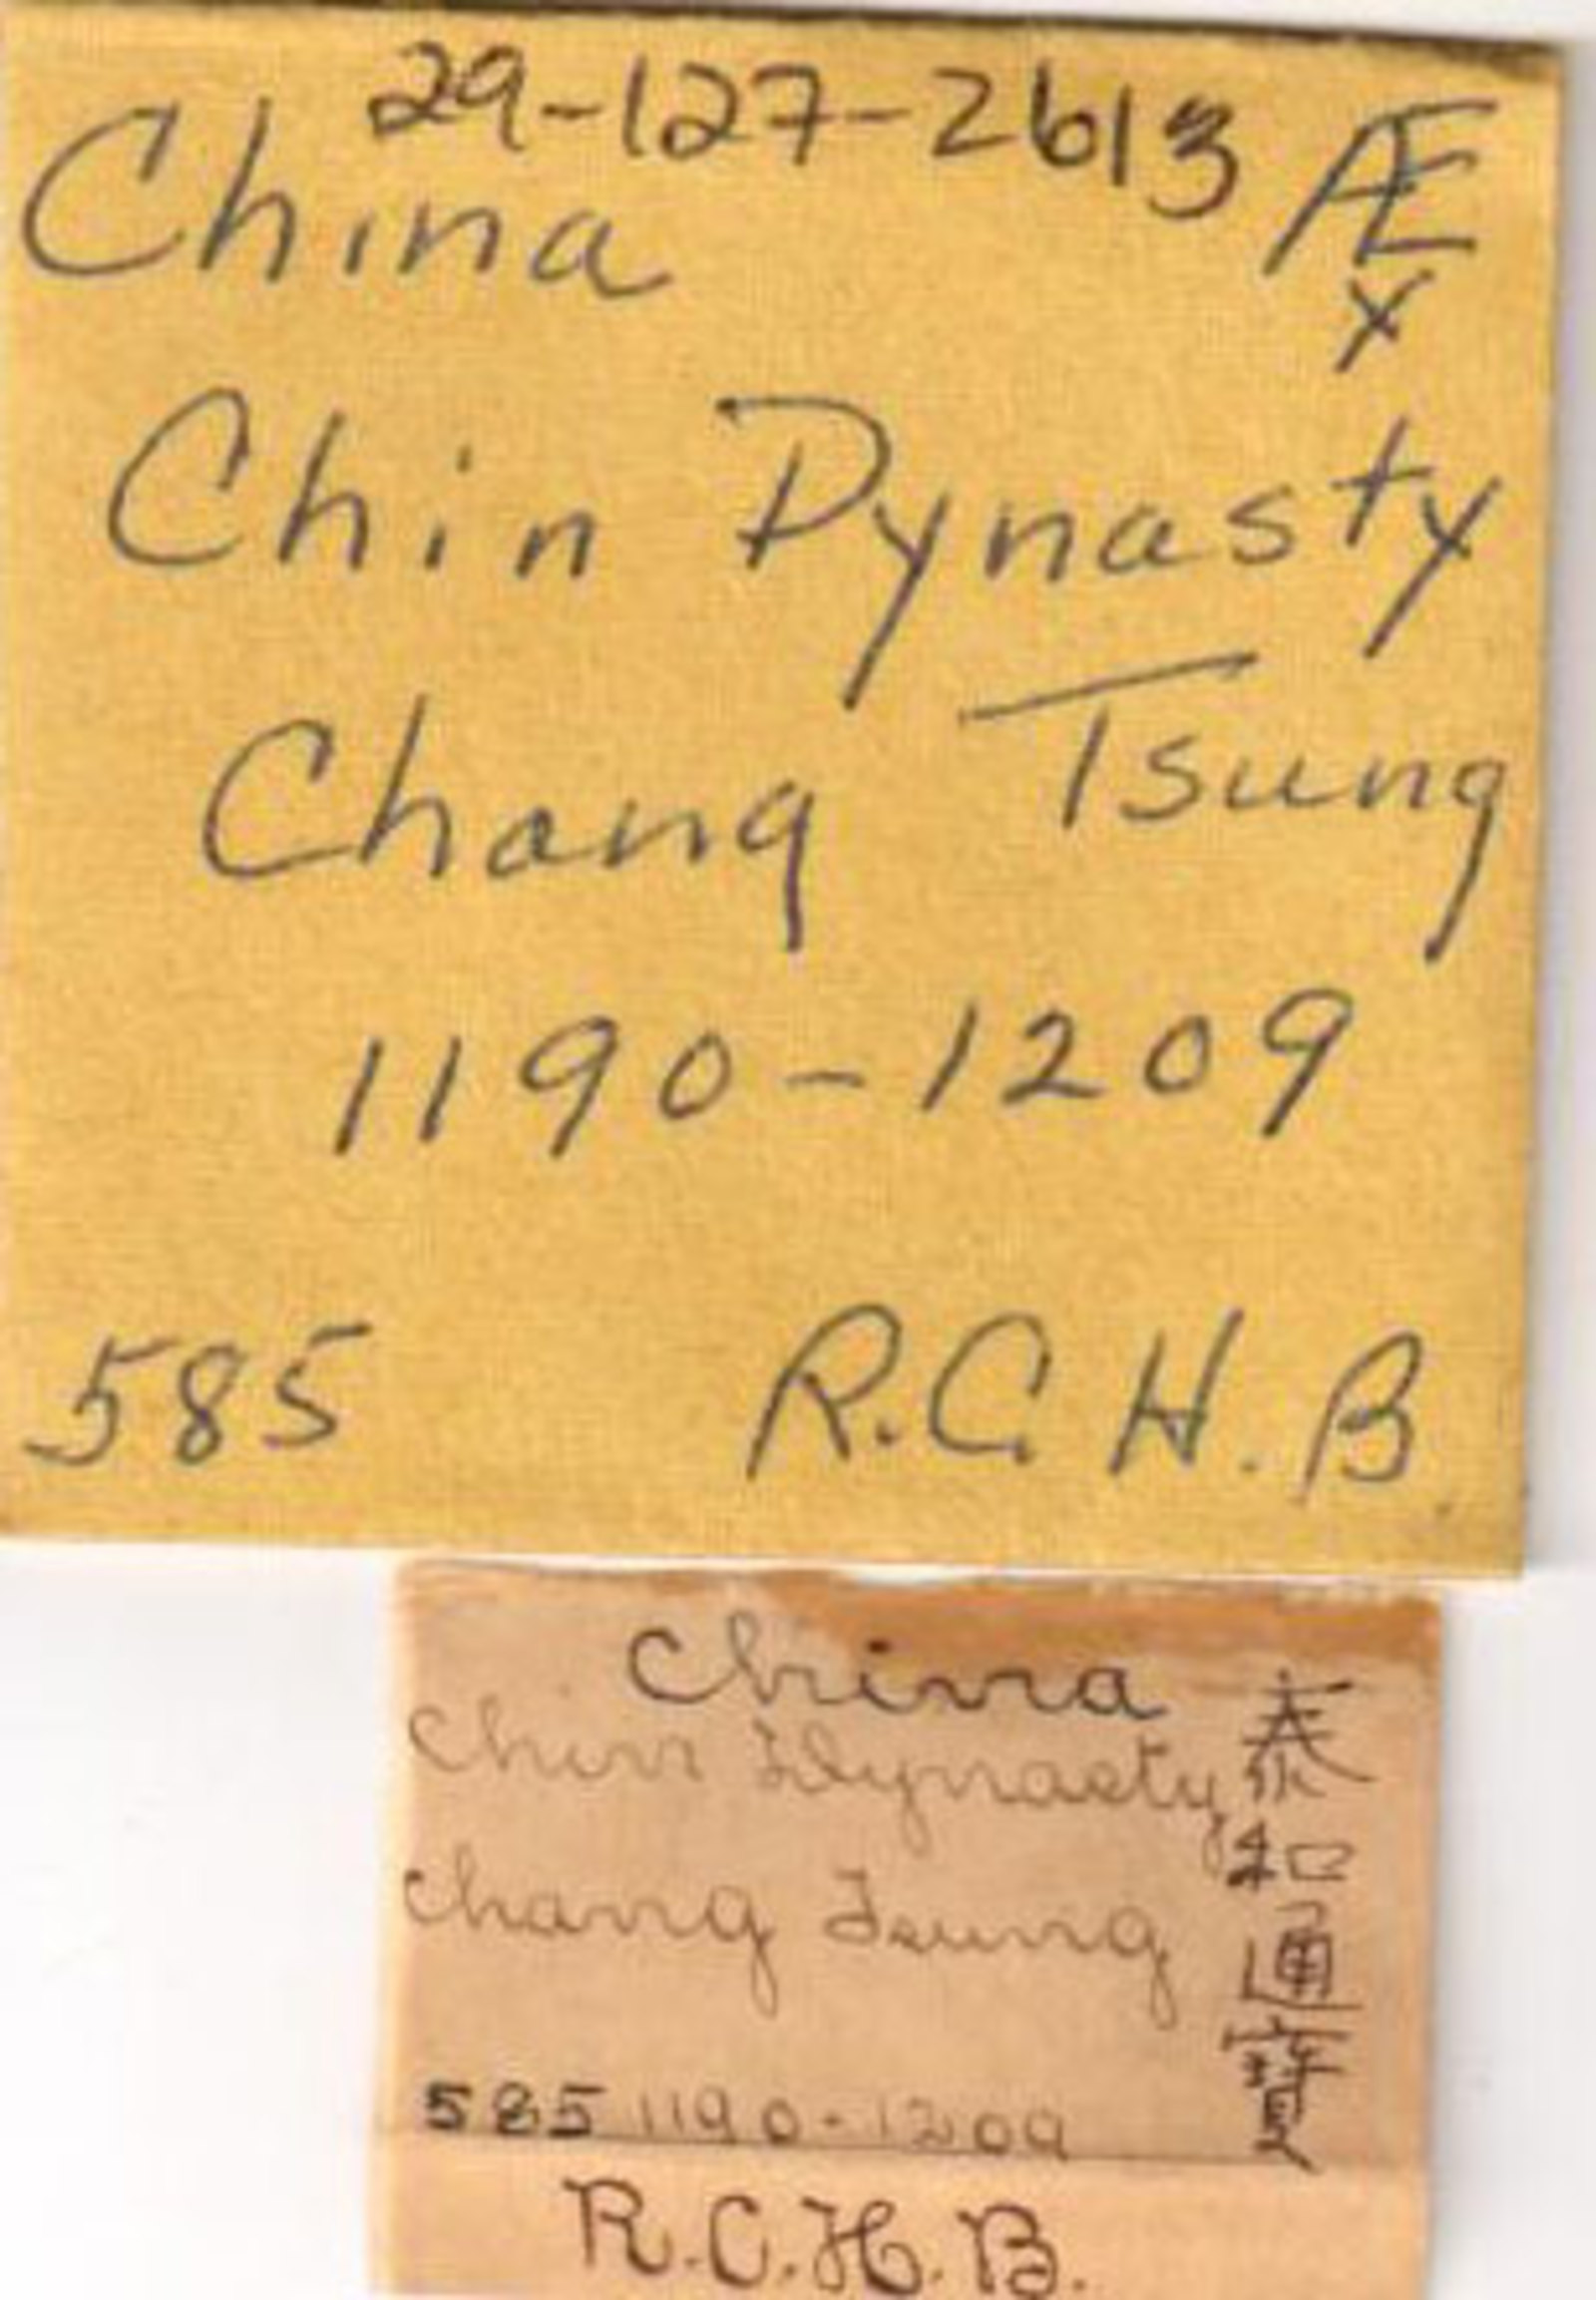 29-127-2613 Æ
China x
Chin Dynasty
Chang Tsung
1190-1209
585 R.C.H.B.
China
Chin Dynasty
Chang Tsung
585 1190-1209
R.C.H.B.
泰和通寶